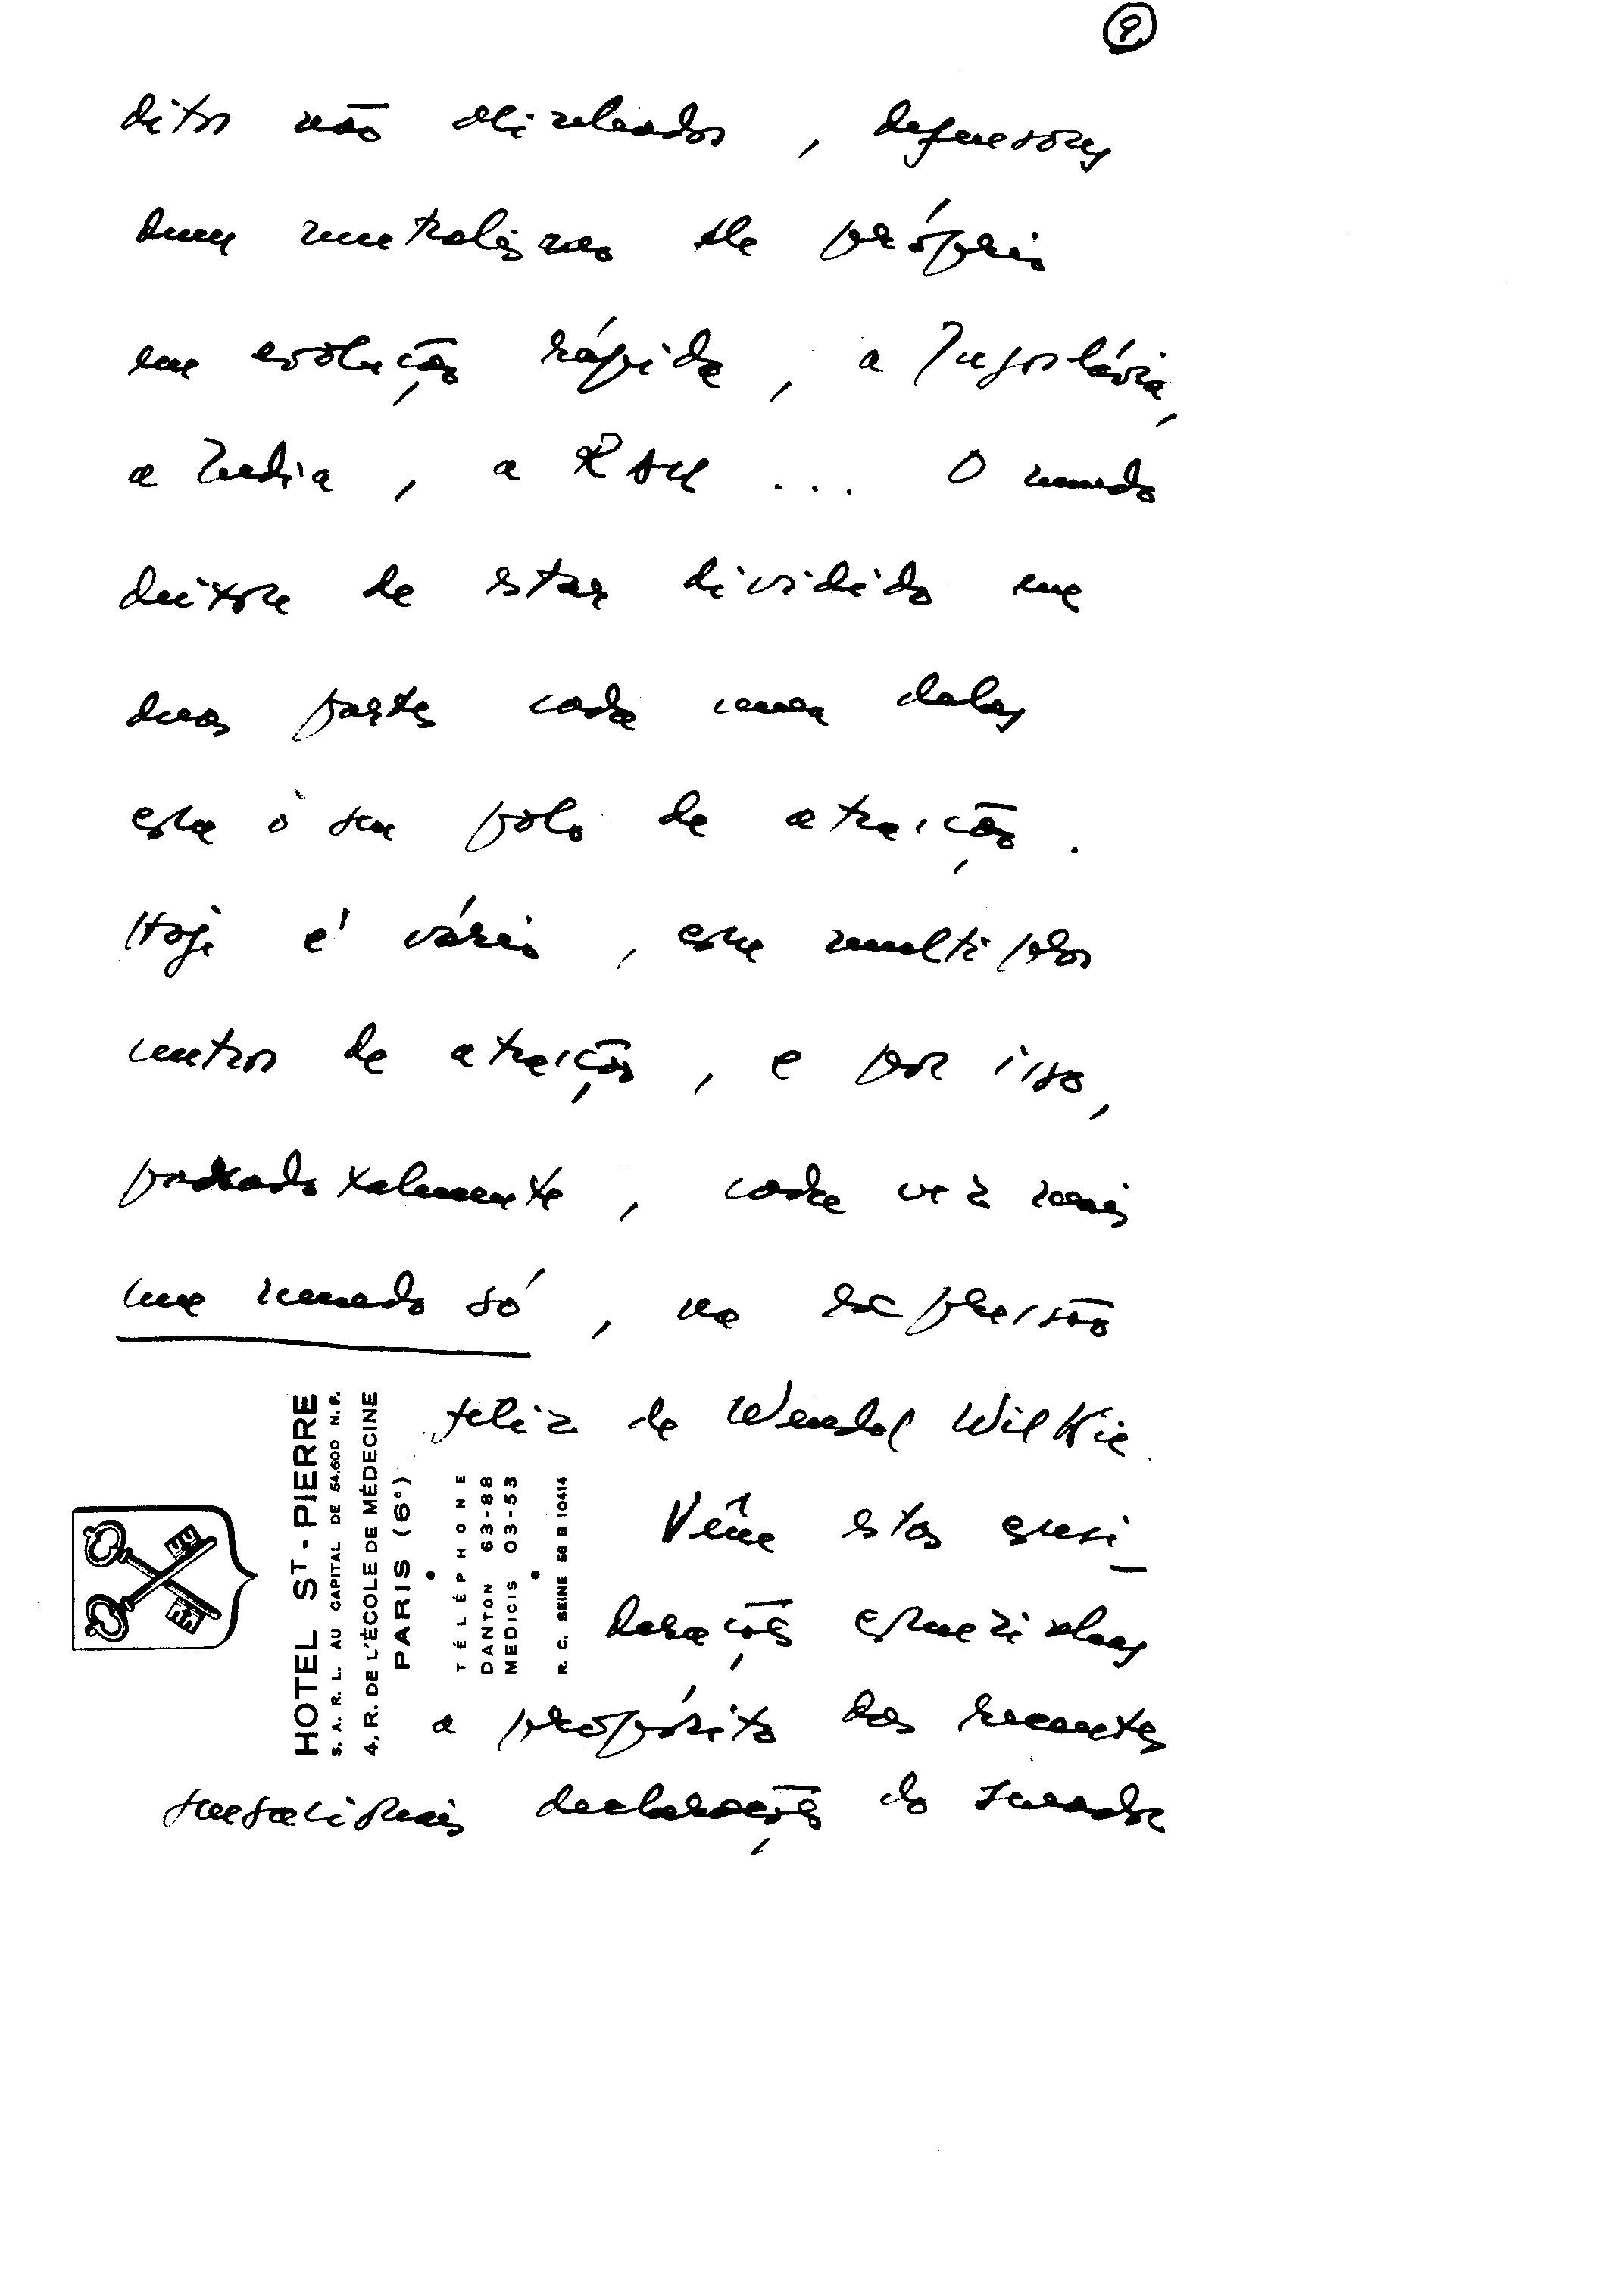 9
ditos não alinhados, defensores
dum neutralismo ele próprio
em evolução rápida, a Jugoslávia,
a India, a RAU... O mundo
deixou de estar dividido em
duas partes cada uma delas
com o seu polo de atracção.
Hoje é vário, com multiplos
centros de atracção, e por isso,
paradoxalmente, cada vez mais
um mundo só, na expressão
feliz de Wendel Wilkie
Vêm estas consi-
derações
a propósito das recentes
sensacionais declarações do senador
HOTEL ST-PIERRE
S. A. R. L. AU CAPITAL DE 54.600 N. F.
4, R. DE L'ÉCOLE DE MÉDECINE
PARIS (6e)
TÉLÉPHONE
DANTON 63-88
MEDICIS 03-53
R. C. SEINE 56 B 10414